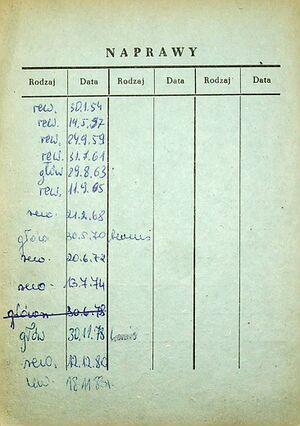 NAPRAWY
Rodzaj Data Rodzaj Data Rodzaj Data
rew. 30.1.54
rew. 14.5.57
rew. 24.9.59
rew. 31.7.61
głów 29.8.63
rew. 11.9.65
rew. 21.2.68
główn. 30.5.70
rew. 20.6.72
rew. 13.7.74
główna 30.6.78
głów 30.11.78
rew. 12.12.80
rew. 18.11.83r.